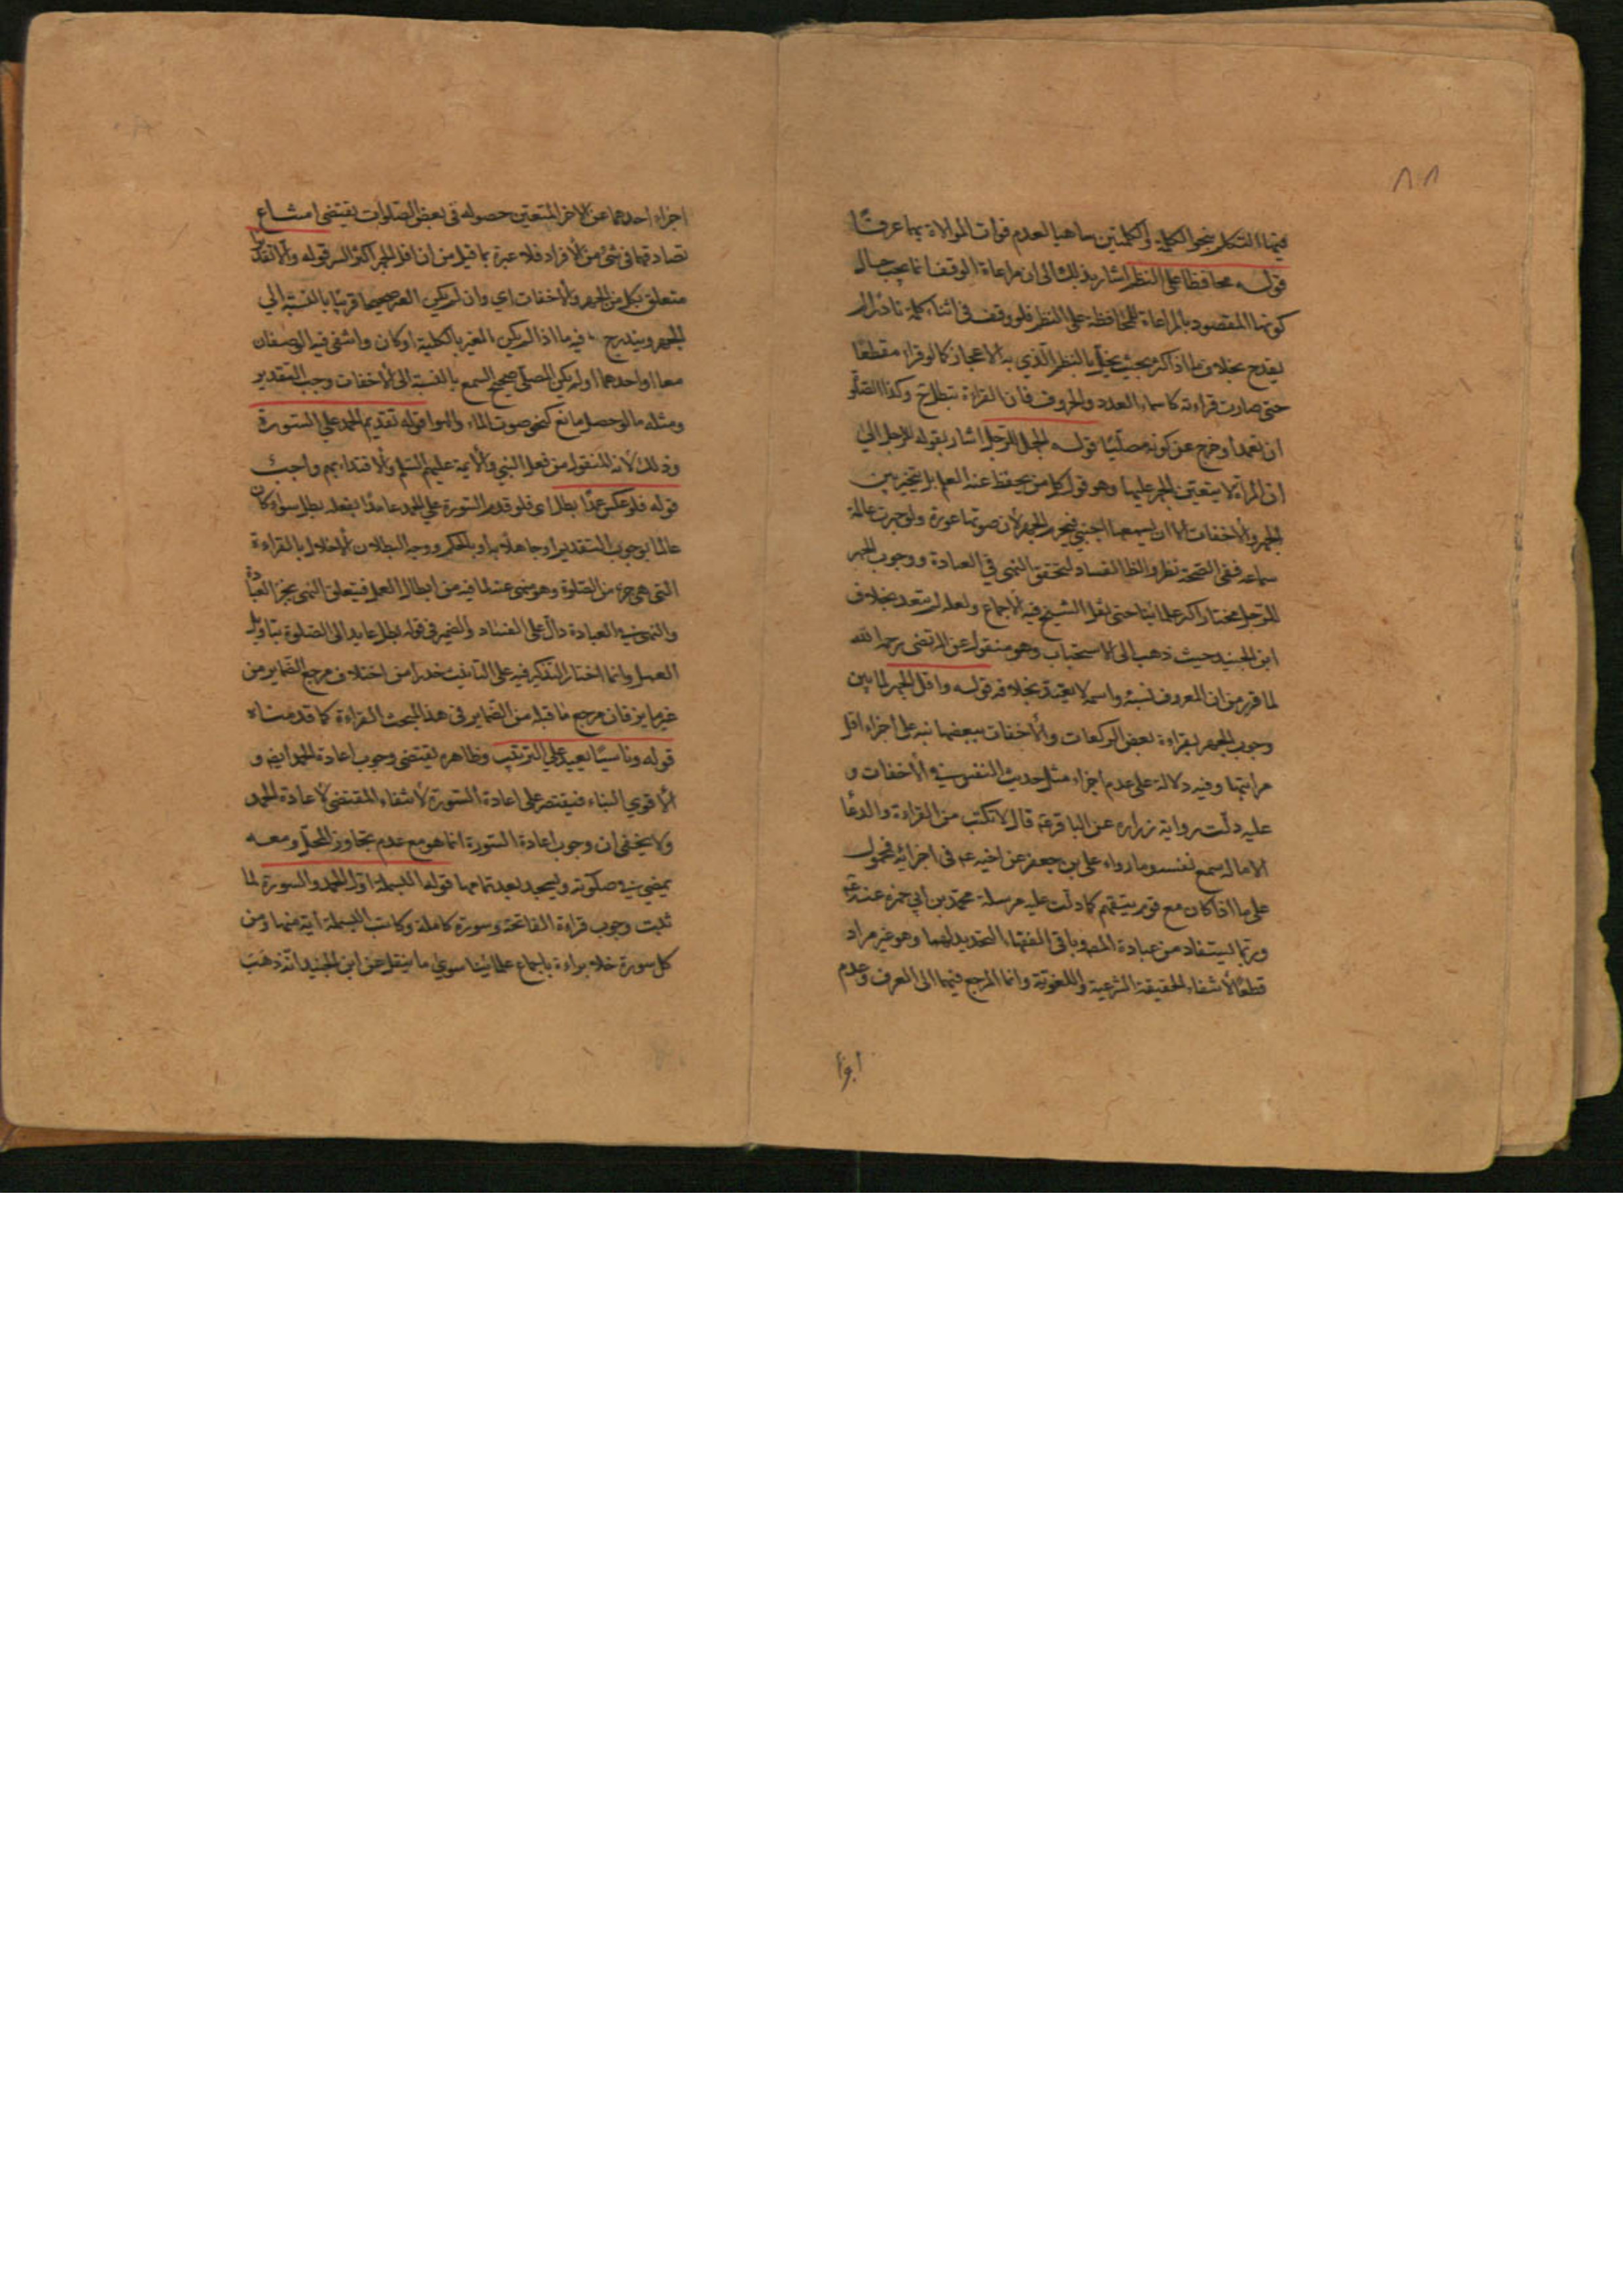 ٨٨
فيهما التكلم بنحو الكلمة والكلمتين ساهيا لعدم فوات الموالاة بهما عرفًا
قوله محافظا على النظم اشار بذلك الى ان مراعاة الوقف انما يجب حال
كونها المقصود بالمراعاة المحافظة على النظم فلو وقف في اثناء كلمة نادرًا لم
يقدح بخلاف ما اذا كثر بحيث يخل بالنظم الذي به الاعجاز كما لو قراء مقطعًا
حتى صارت قراءته كاسماء العدد والحروف فان القراءة تبطل ح وكذا الصلو
ان تعمد او خرج عن كونه مصلّيًا قوله الجهر للرجل اشار بقوله للرجل الى
ان المرأة لا يتعين الجهر عليها وهو قول كل من يحفظ عنه العلم بل يتخير بين
الجهر والاخفات الا ان يسمعها اجنبي فيحرم الجهر لان صوتها عورة ولو جهرت عالمة
سماعه ففى الصحة نظر والظ الفساد لتحقق النهى في العبادة ووجوب الجهر
للرجل مختار اكثر علمائنا حتى نقل الشيخ فيه الاجماع ولعله لم يتعد بخلاف
ابن الجنيد حيث ذهب الى الاستحباب وهو منقول عن المرتضى رحمه الله
لما قرر من ان المعروف نسبه واسمه لا يعتد بخلافه قوله واقل الجهر لما بين
وجوب الجهر بقراءة بعض الركعات والاخفات ببعضها نبه على اجزاء اقل
مراتبها وفيه دلالة على عدم اجزاء مثل حديث النفس في الاخفات و
عليه دلّت رواية زرارة عن الباقر عم قال لا تكتب من القراءة والدعا
الا ما اسمع نفسه وما رواه على بن جعفر عن اخيه عم فى اجزائه فمحمول
على ما اذا كان مع قوم يتقيهم كما دلّت عليه مرسلة محمد بن ابي حمزة عنه عم
وربما يستفاد من عبادة المصه وباقى الفقهاء التحديد لهما وهو غير مراد
قطعًا لانتفاء الحقيقة الشرعية واللغوية وانما المرجع فيهما الى العرف وعدم
اجزاء
اجزاء احدهما عن الاخر المتعين حصوله فى بعض الصلوات يقتضى امتناع
تصادقهما فى شئ من الافراد فلا عبرة بما قيل من ان اقل الجهر اكثر السر قوله والا تقديرًا
متعلق بكل من الجهر والاخفات اي وان لم يكن الغير صحيحا قريبًا بالنسبة الي
الجهر ويندرج فيه ما اذا لم يكن الغير بالكلية او كان وانتفى فيه الوصفان
معا او احدهما او لم يكن المصلّي صحيح السمع بالنسبة الى الاخفات وجب التقدير
ومثله ما لو حصل مانع كنحو صوت الماء والهوا قوله تقديم الحمد على السورة
وذلك لانه المنقول من فعل النبي والايمة عليهم السلم والاقتداء بهم واجبٌ
قوله فلو عكس عمدًا بطل اى فلو قدم السورة على الحمد عامدًا بفعله بطل سواء كان
عالما بوجوب التقديم او جاهلًا به او بالحكم ووجه البطلان الاخلال بالقراءة
التى هي جزء من الصلوة وهو منهى عنه لما فيه من ابطال العمل فيتعلق النهى بجزء العبادة
والنهى في العبادة دالٌ على الفساد والضمير في قوله بطل عايد الى الصلوة بتاويل
العمل وانما اختار التذكير فيه على التانيث حذرا من اختلاف مرجع الضماير من
غير مايز فان مرجع ما قبله من الضماير فى هذا البحث القراءة كما قدمناه
قوله وناسيًا يعيد على الترتيب وظاهره يقتضى وجوب اعادة الحمد ايضو و
الاقوي البناء فيقتصر على اعادة السورة لانتفاء المقتضى لاعادة الحمد
ولا يخفى ان وجوب اعادة السورة انما هو مع عدم تجاوز المحلّ ومعه
يمضى في صلوته ويسجد بعد تمامها قوله البسملة اوّل الحمد والسورة لما
ثبت وجوب قراءة الفاتحة وسورة كاملة وكانت البسملة اية منها ومن
كل سورة خلا براءة باجماع علمائنا سوي ما ينقل عن ابن الجنيد انّه ذهَب